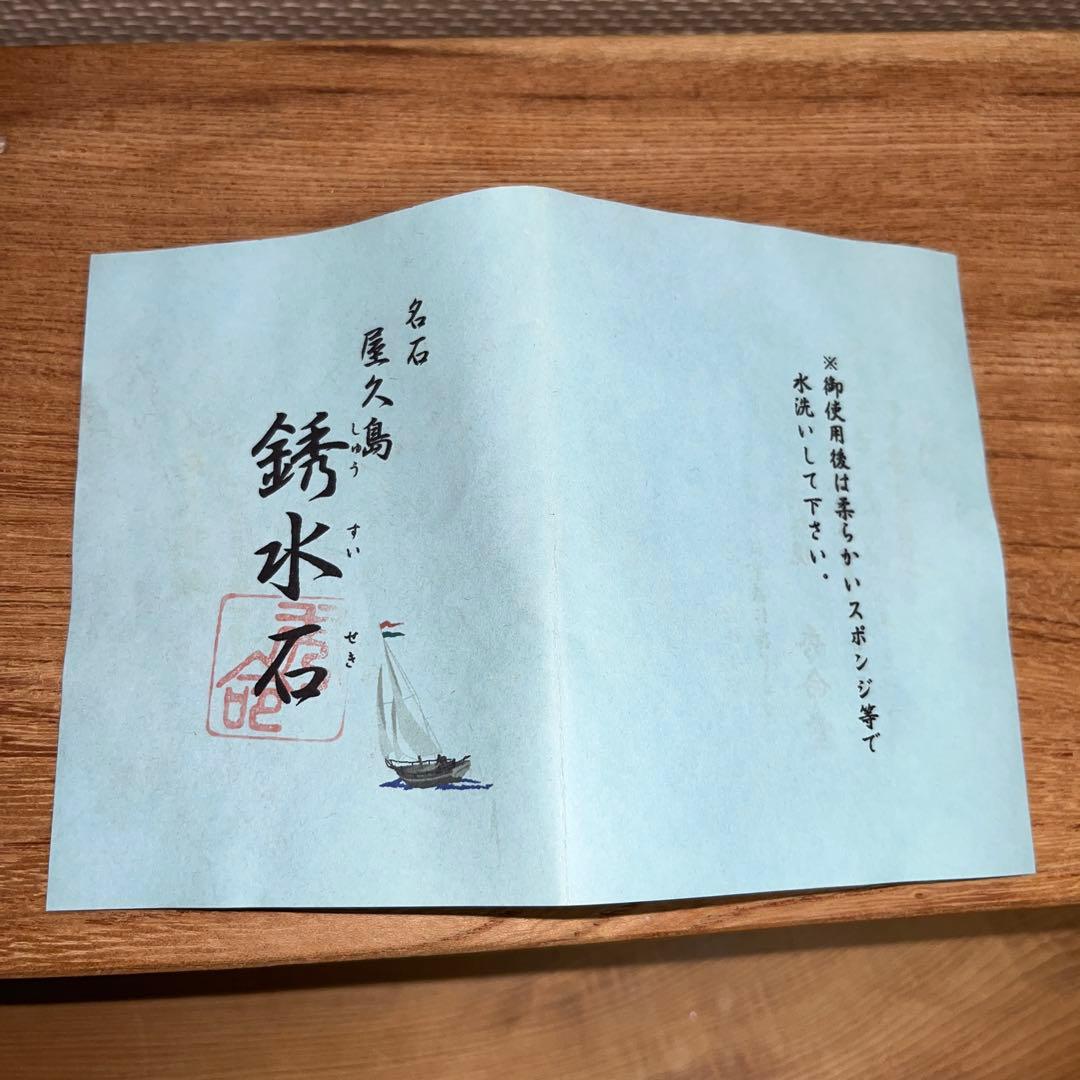 ※御使用後は柔らかいスポンジ等で
水洗いして下さい。
名石
屋久島
銹水石
しゅう すい せき